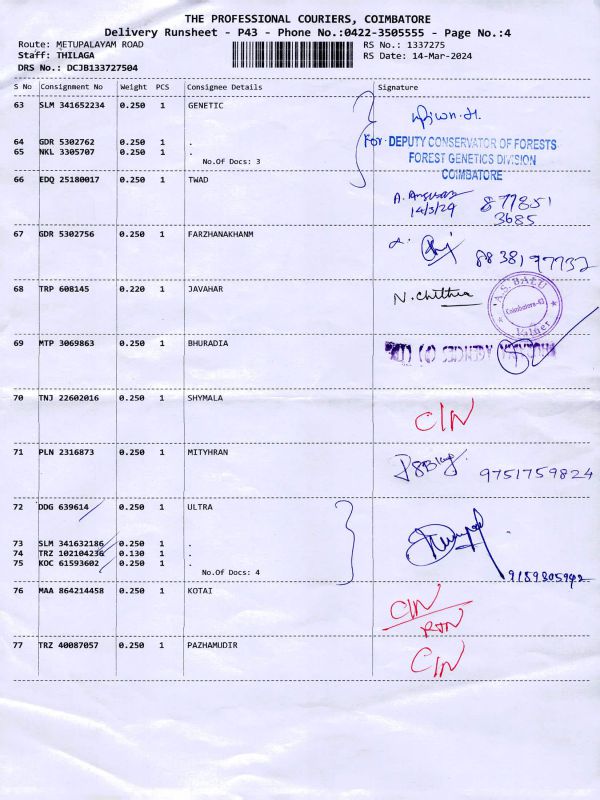 THE PROFESSIONAL COURIERS, COIMBATORE
Delivery Runsheet - P43 - Phone No.:0422-3505555 - Page No.:4
Route: METUPALAYAM ROAD RS No.: 1337275
Staff: THILAGA RS Date: 14-Mar-2024
DRS No.: DCJB133727504
S No Consignment No Weight PCS Consignee Details Signature
63 SLM 341652234 0.250 1 GENETIC
64 GDR 5302762 0.250 1 .
For DEPUTY CONSERVATOR OF FORESTS
65 NKL 3305707 0.250 1 .
No.Of Docs: 3
FOREST GENETICS DIVISION
COIMBATORE
66 EDQ 25180017 0.250 1 TWAD
14/3/24 877851
3685
67 GDR 5302756 0.250 1 FARZHANAKHANM
8838197732
68 TRP 608145 0.220 1 JAVAHAR
N. Chithra
A.S. BABU
Coimbatore-43
69 MTP 3069863 0.250 1 BHURADIA
70 TNJ 22602016 0.250 1 SHYMALA
C/N
71 PLN 2316873 0.250 1 MITYHRAN
9751759824
72 DDG 639614 0.250 1 ULTRA
73 SLM 341632186 0.250 1 .
74 TRZ 102104236 0.130 1 .
75 KOC 61593602 0.250 1 .
No.Of Docs: 4
9159805942
76 MAA 864214458 0.250 1 KOTAI
C/N
RTN
77 TRZ 40087057 0.250 1 PAZHAMUDIR
C/N